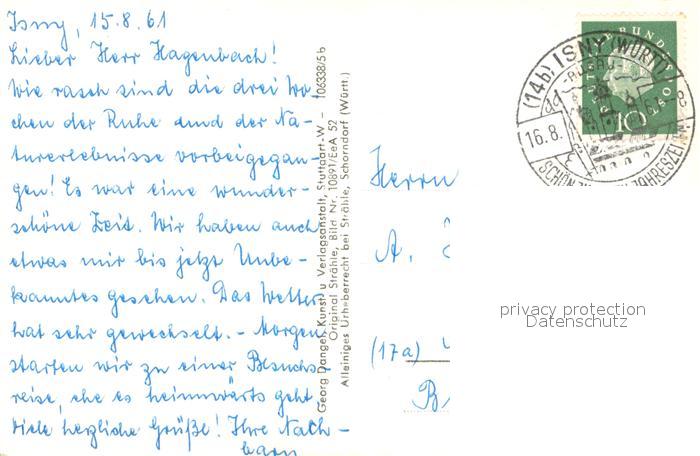 Isny, 15.8.61
Lieber Herr Hagenbach!
Wie rasch sind die drei Wo-
chen der Ruhe und der Na-
turerlebnisse vorbeigegan-
gen! Es war eine wunder-
schöne Zeit. Wir haben auch
etwas mir bis jetzt Unbe-
kanntes gesehen. Das Wetter
hat sehr gewechselt. - Morgen
starten wir zu einer Besuchs-
reise, ehe es heimwärts geht
Viele herzliche Grüße! Ihre Nach-
barn
Georg Dangel, Kunst u Verlagsanstalt, Stuttgart-W - 106338/5 b
Original Strähle, Bild Nr. 10891/EeA 52
Alleiniges Urheberrecht bei Strähle, Schorndorf (Württ.)
(14b) ISNY (WÜRTT)
16.8.
SCHÖN ZU
JAHRESZEITEN
BUND
10
Herrn
A.
(17a)
B
privacy protection
Datenschutz